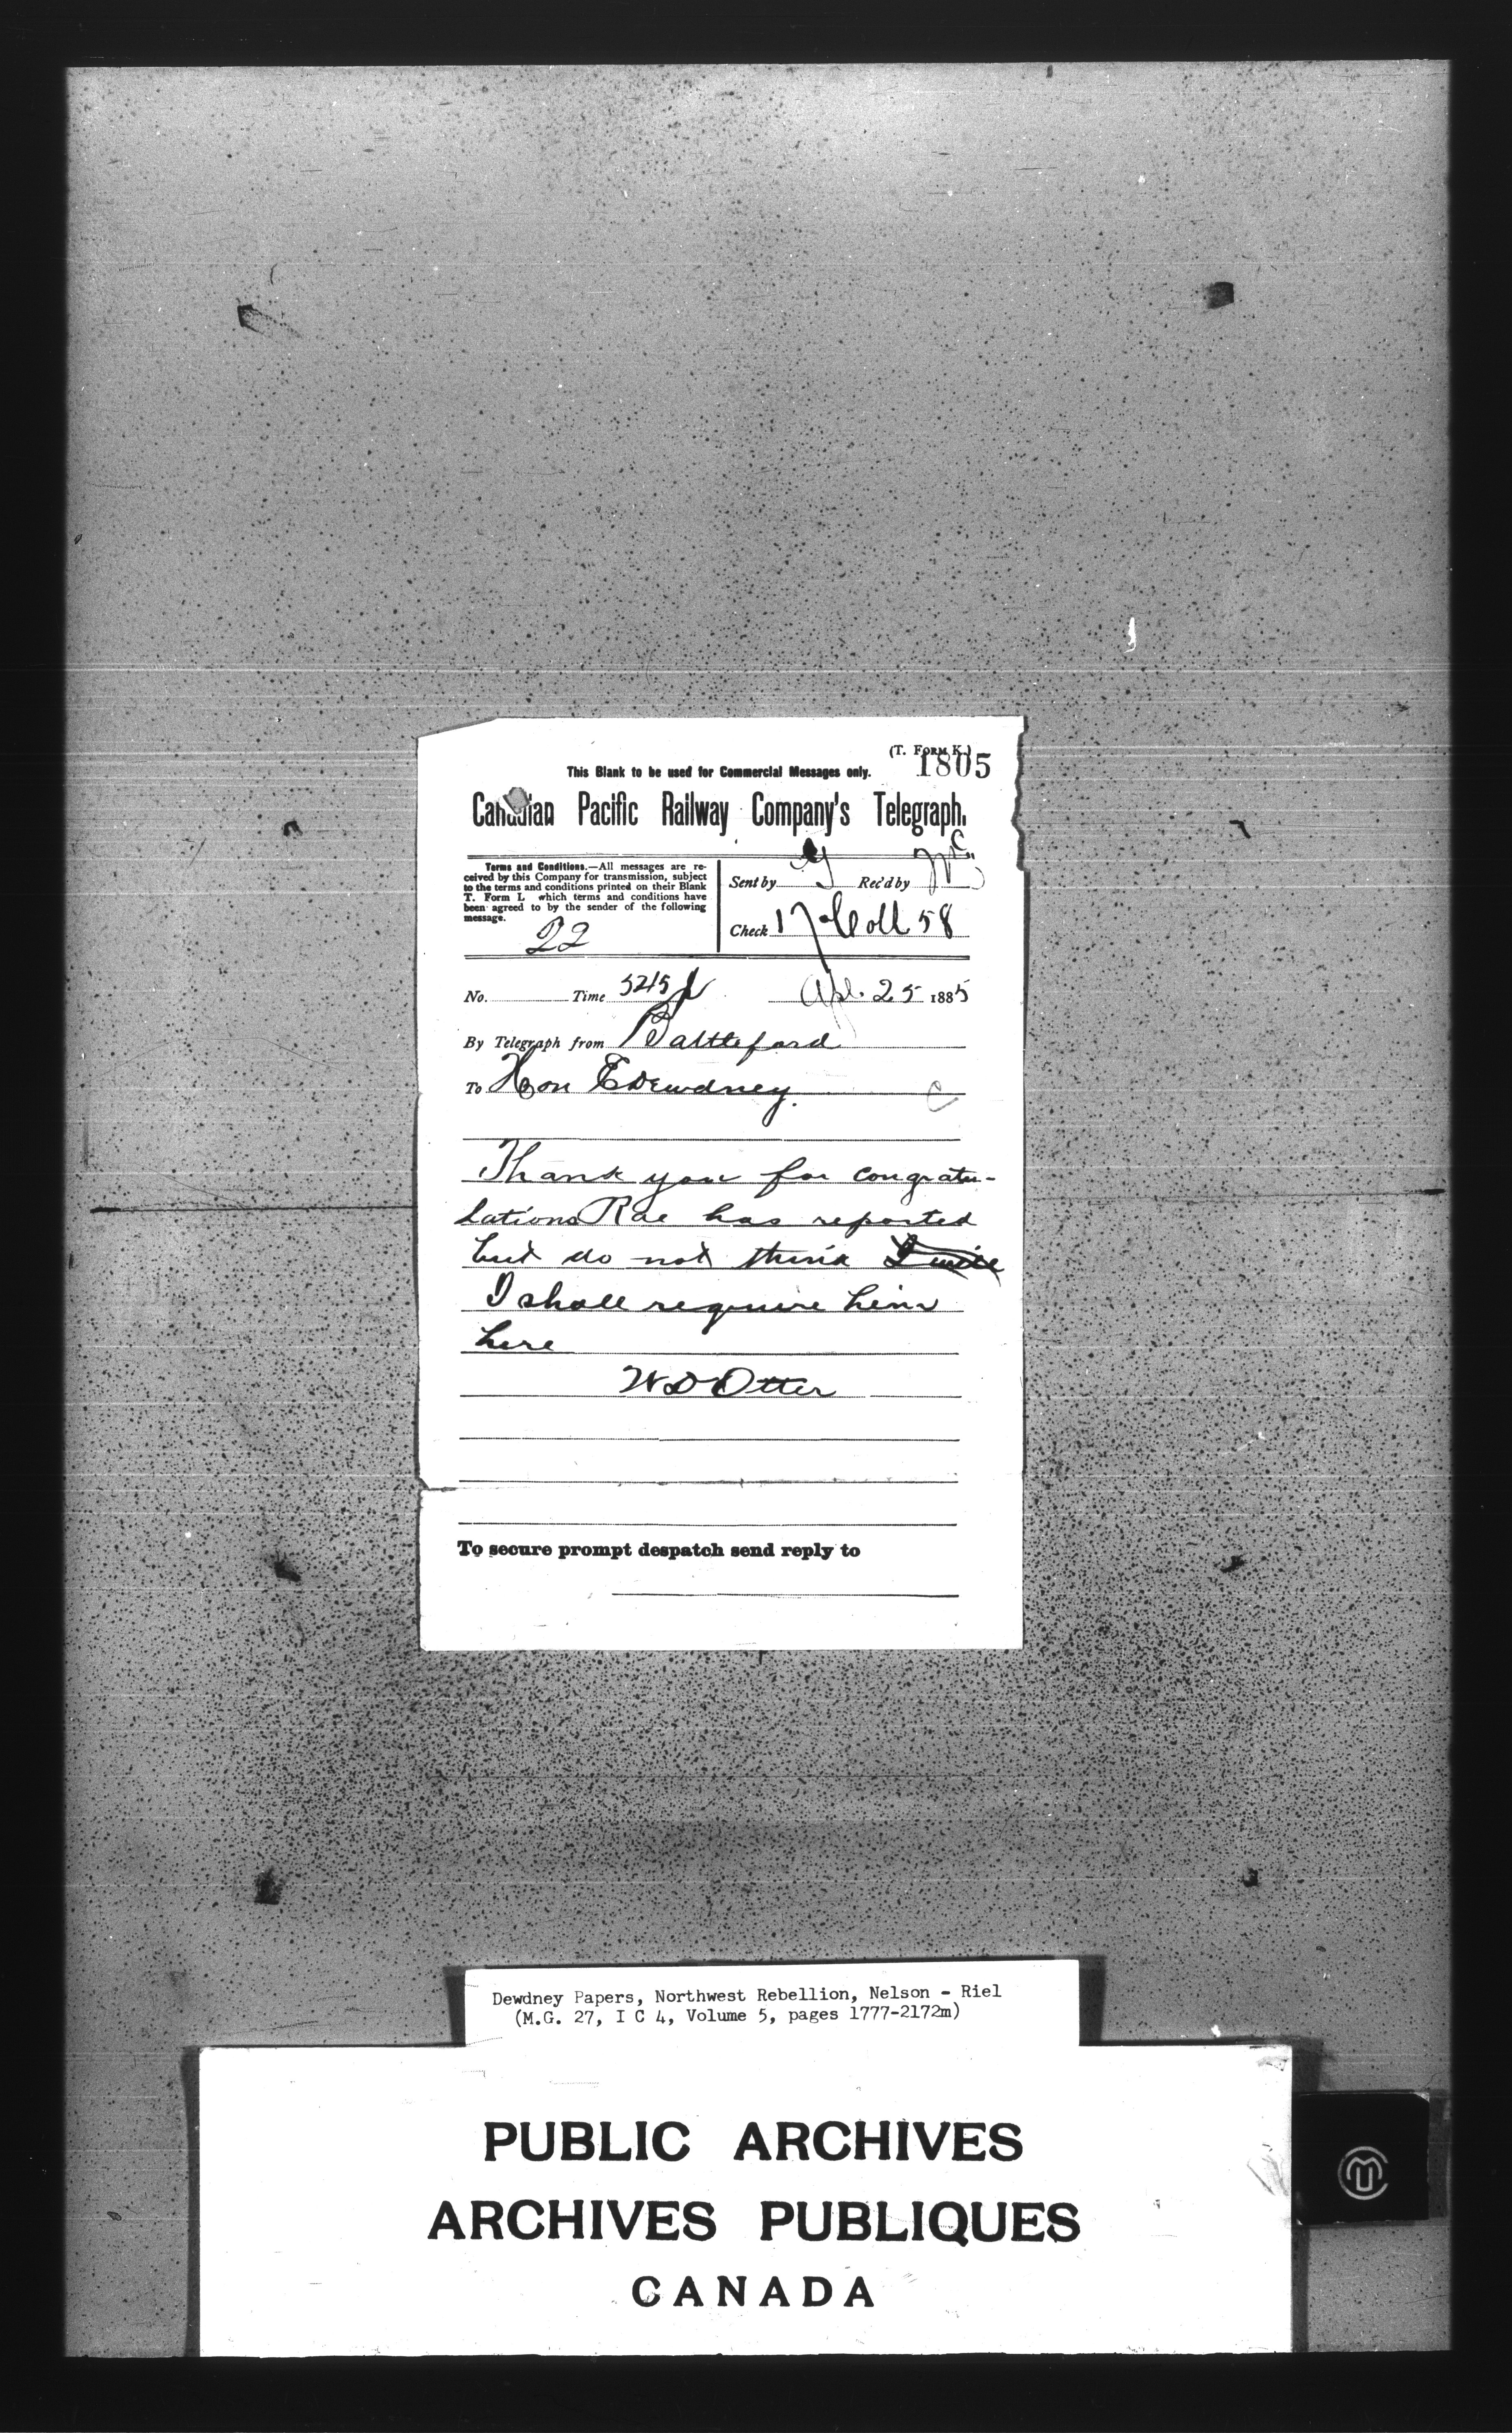 (T. FORM K.)
1805
This Blank to be used for Commercial Messages only.
Canadian Pacific Railway Company's Telegraph.
Terms and Conditions.—All messages are re-
ceived by this Company for transmission, subject
to the terms and conditions printed on their Blank
T. Form L which terms and conditions have
been agreed to by the sender of the following
message.
22
Sent by Rec'd by
Check 17 Coll 58
No. Time 5215 Apl. 25 1885
By Telegraph from Battleford
To Hon E Dewdney.
Thank you for congratu-
lations Rae has reported
but do not think
I shall require him
here
W D Otter
To secure prompt despatch send reply to
Dewdney Papers, Northwest Rebellion, Nelson - Riel
(M.G. 27, I C 4, Volume 5, pages 1777-2172m)
PUBLIC ARCHIVES
ARCHIVES PUBLIQUES
CANADA